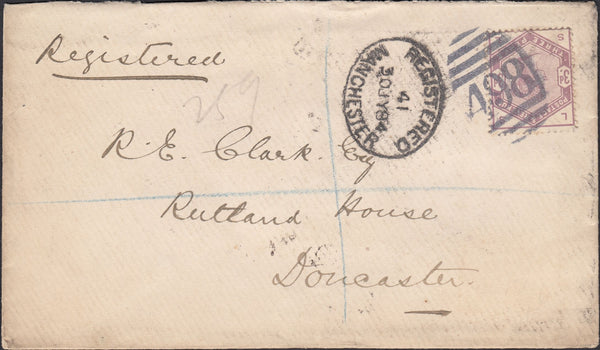 Registered
259
REGISTERED
41
30 JY 84
MANCHESTER
498
S
3D.
L
R. E. Clark. Esq
Rutland House
Doncaster.